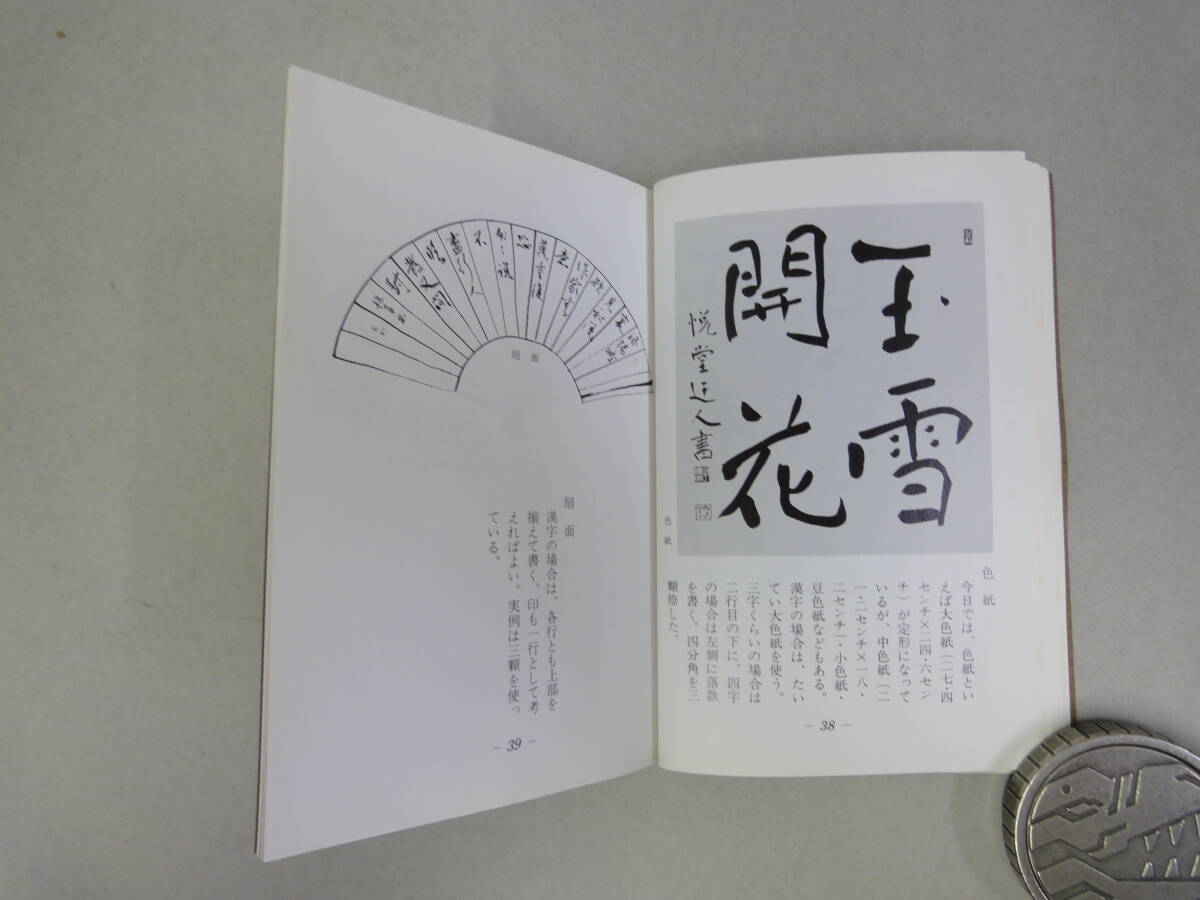 玉雪
開花
悦堂迂人書
色紙
色紙
今日では、色紙とい
えば大色紙（二七・四
センチ×二四・六セン
チ）が定形になって
いるが、中色紙（二
一・二センチ×一八・
二センチ）・小色紙・
豆色紙などもある。
漢字の場合は、たい
てい大色紙を使う。
三字くらいの場合は
二行目の下に、四字
の場合は左側に落款
を書く。四分角を三
顆捺した。
— 38 —
扇面
扇面
漢字の場合は、各行とも上部を
揃えて書く。印も一行として考
えればよい。実例は三顆を使っ
ている。
— 39 —